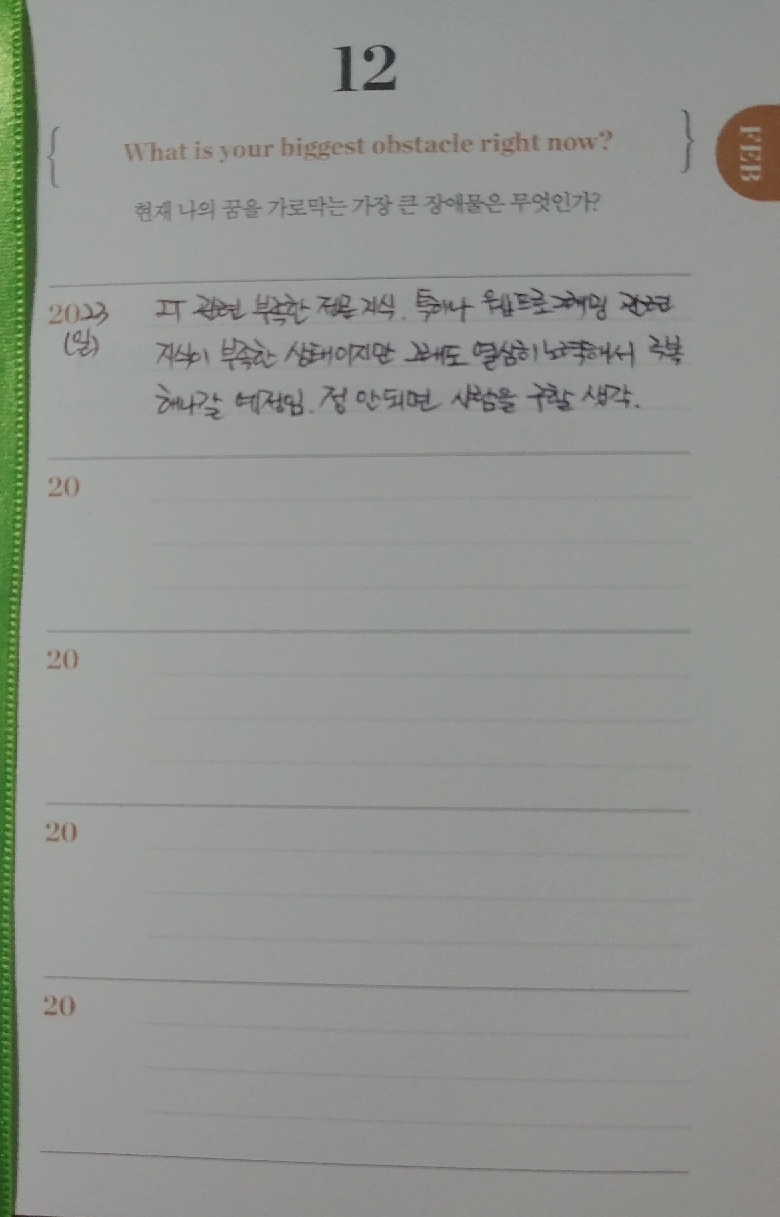 12
What is your biggest obstacle right now?
FEB
현재 나의 꿈을 가로막는 가장 큰 장애물은 무엇인가?
2023 IT 관련 부족한 전문지식. 특히나 웹프로그래밍 관련
(일) 지식이 부족한 상태이지만 그래도 열심히 노력해서 극복
해나갈 예정임. 정 안되면 사람을 구할 생각.
20
20
20
20